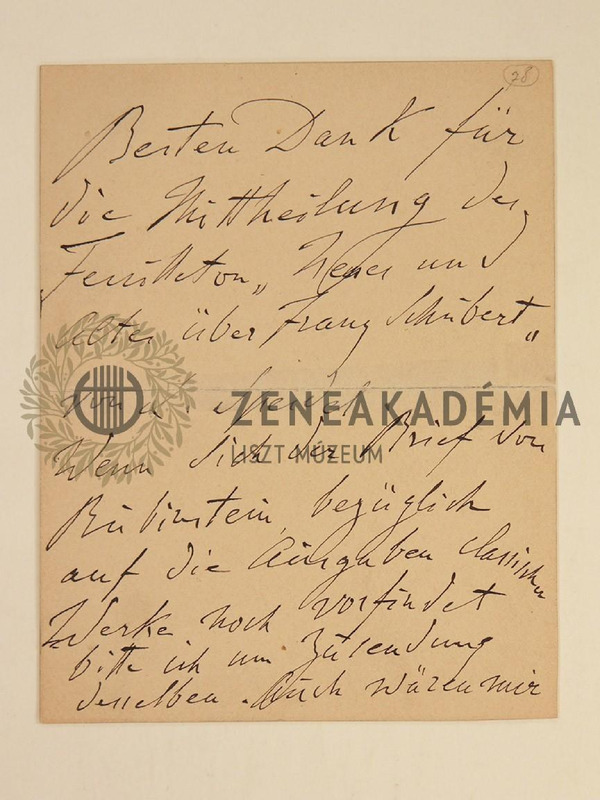 28
Besten Dank für
die Mittheilung des
Feuilleton „Neues und
Altes über Franz Schubert"
von . Speidel.
ZENEAKADÉMIA
LISZT MÚZEUM
Wenn sich der Brief von
Rubinstein, bezüglich
auf die Ausgaben classischer
Werke noch vorfindet
bitte ich um Zusendung
desselben. Auch wären mir